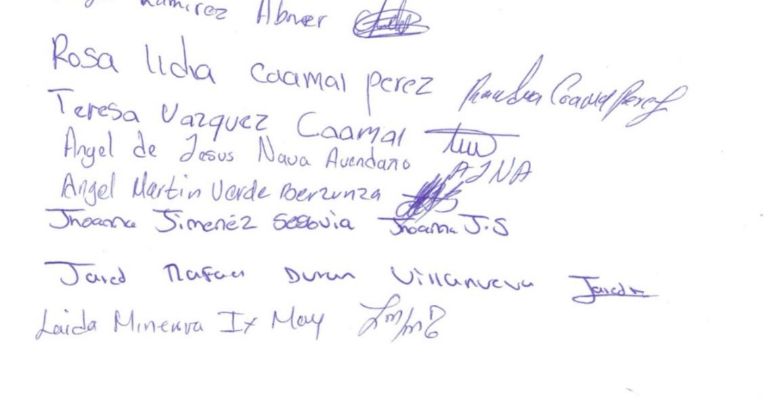 Ramirez Abner
Rosa lidia Caamal perez
Teresa Vazquez Caamal
Angel de Jesus Nava Avendaño AJNA
Angel Martin Verde Berzunza
Jhoanna Jimenéz Segovia Jhoanna J.S
Jared Rafael Duran Villanueva Jared
Laida Minerva Ix May